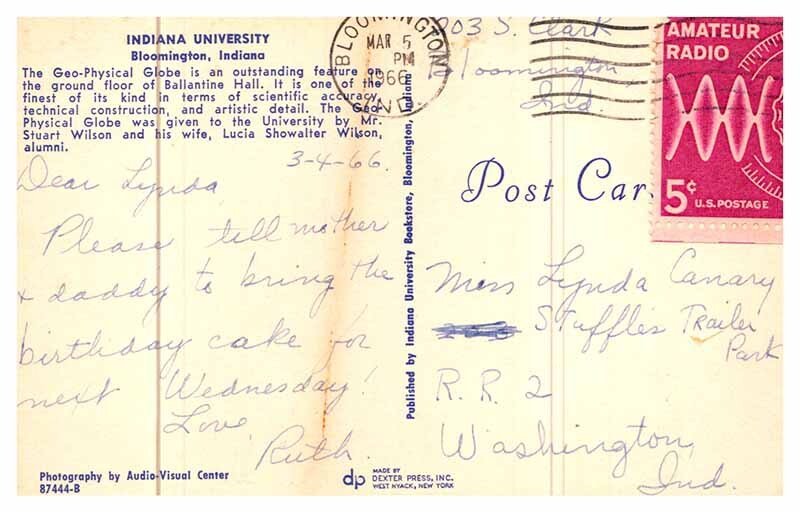 INDIANA UNIVERSITY
Bloomington, Indiana
The Geo-Physical Globe is an outstanding feature on
the ground floor of Ballantine Hall. It is one of the
finest of its kind in terms of scientific accuracy,
technical construction, and artistic detail. The Geo-
Physical Globe was given to the University by Mr.
Stuart Wilson and his wife, Lucia Showalter Wilson,
alumni.
3-4-66.
Dear Lynda,
Please tell mother
& daddy to bring the
birthday cake for
next Wednesday!
Love,
Ruth.
Photography by Audio-Visual Center
87444-B
Published by Indiana University Bookstore, Bloomington, Indiana
dp
MADE BY
DEXTER PRESS, INC.
WEST NYACK, NEW YORK
BLOOMINGTON
MAR 5
PM
1966
IND.
903 S. Clark
Bloomington,
Ind.
AMATEUR
RADIO
5¢
U.S. POSTAGE
Post Car
Miss Lynda Canary
Stuffles Trailer
Park
R. R. 2
Washington,
Ind.